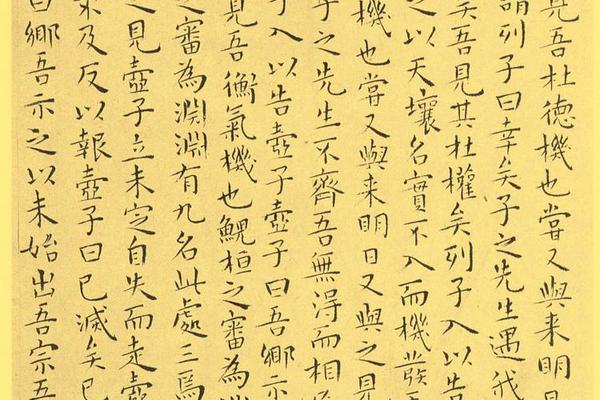 見吾杜德機也嘗又與来明日
謂列子曰幸矣子之先生遇我
矣吾見其杜權矣列子入以告
之以天壤名實不入而機發
機也嘗又與来明日又與之見
子之先生不齊吾無淂而相
子入以告壺子壺子曰吾鄉示
見吾衡氣機也鯢桓之審為淵
之審為淵淵有九名此處三焉
之見壺子立未定自失而走壺
来及反以報壺子曰已滅矣已
曰鄉吾示之以未始出吾宗吾